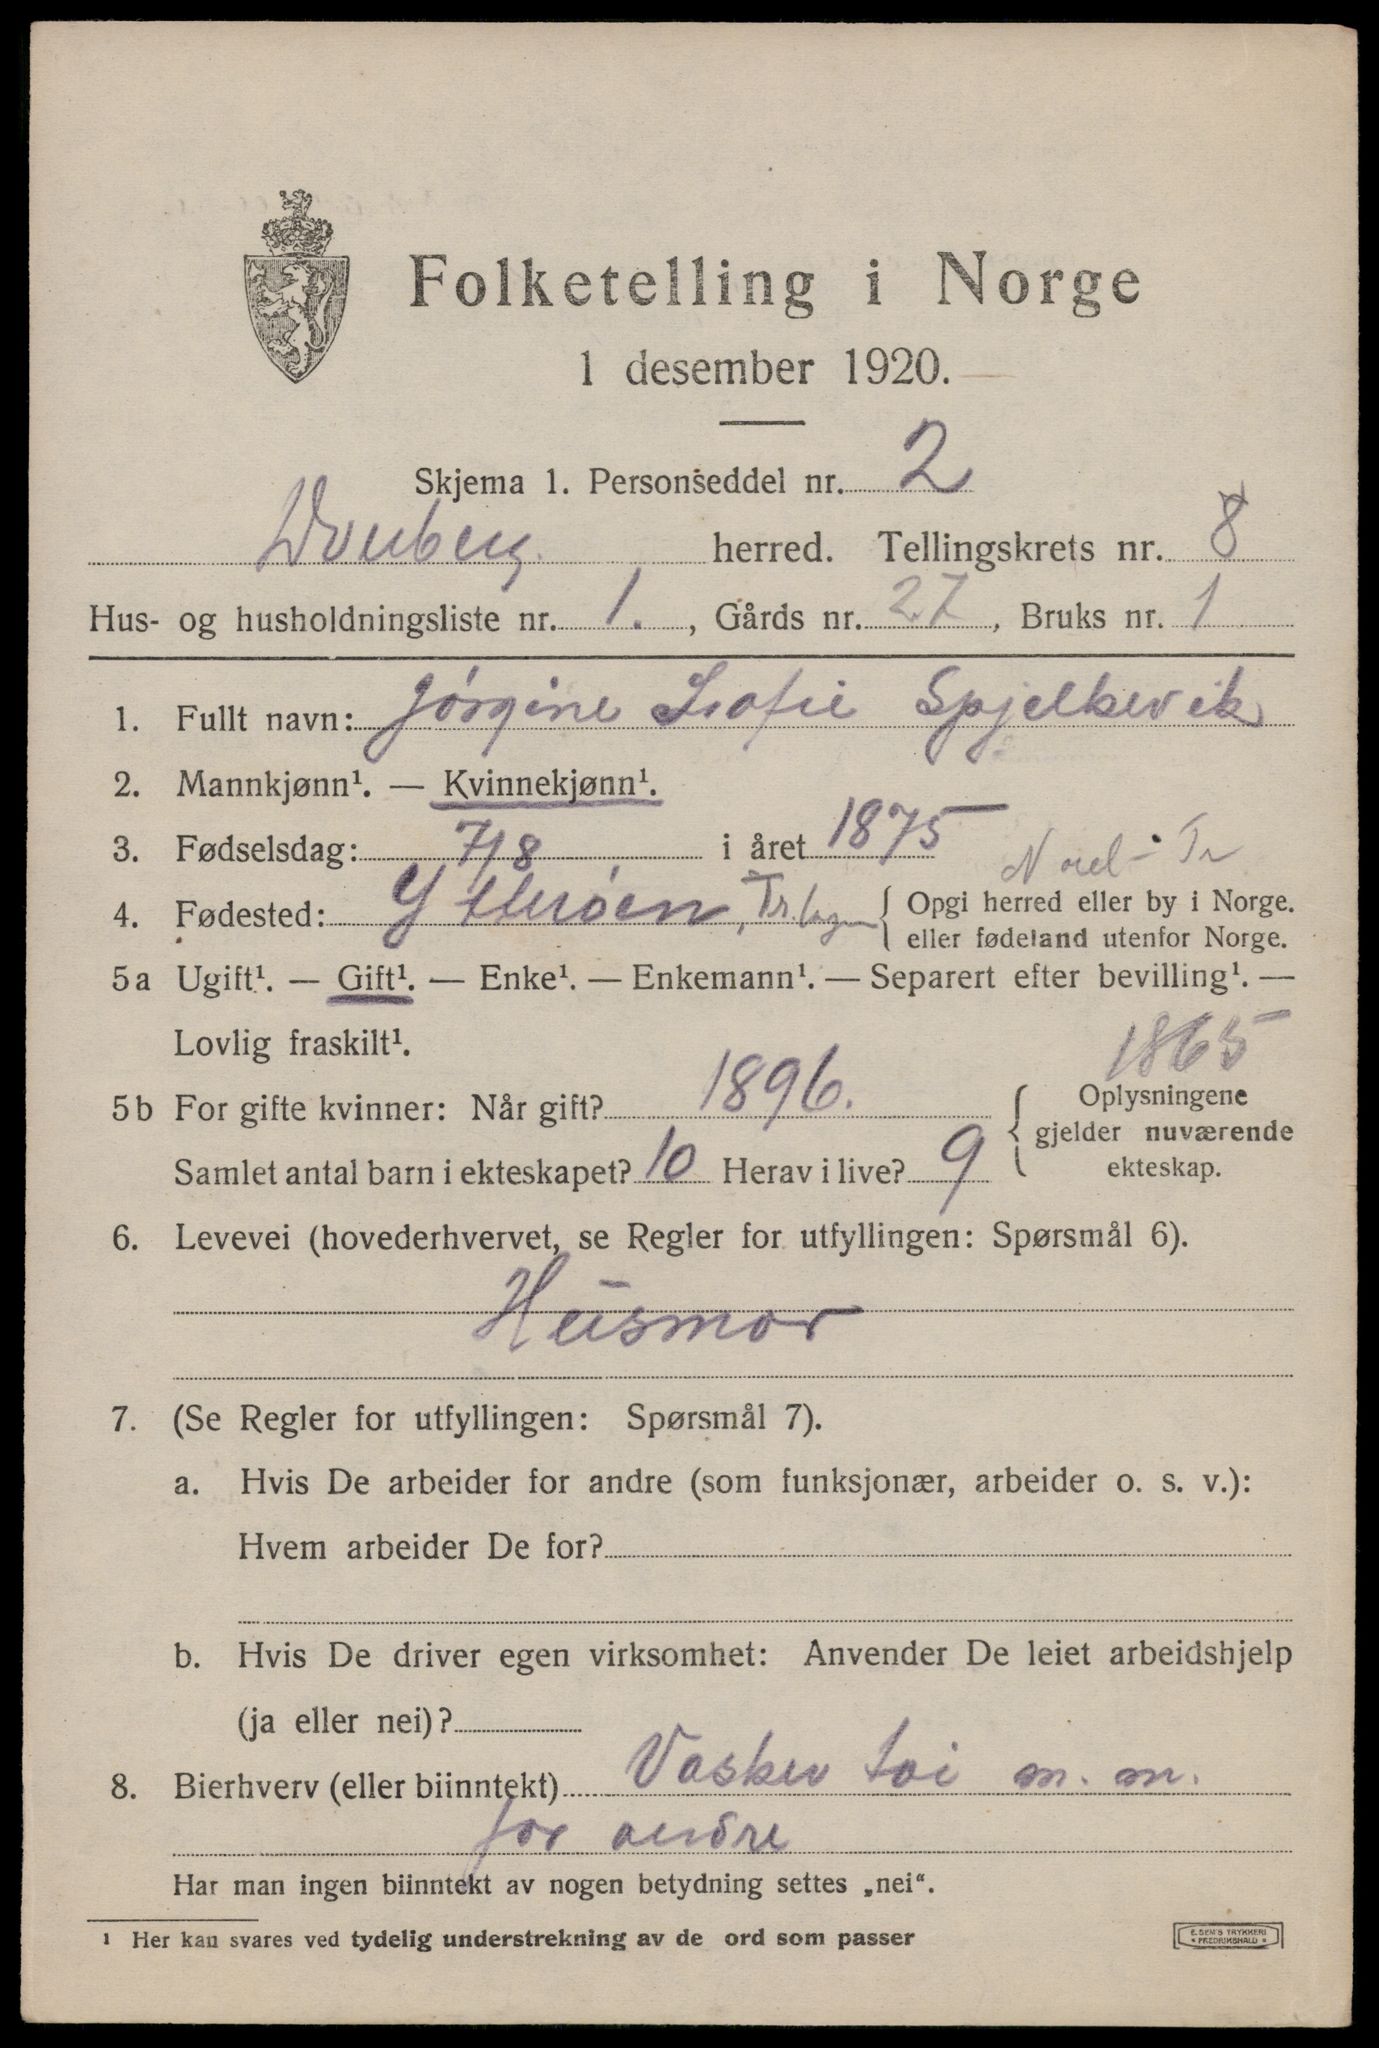 Folketelling i Norge
1 desember 1920.
Skjema 1. Personseddel nr. 2
herred. Tellingskrets nr. 8
Hus- og husholdningsliste nr. 1., Gårds nr. 27, Bruks nr. 1
1. Fullt navn: Jörgine Sofie Spjelkevik
2. Mannkjønn¹. — Kvinnekjønn¹.
3. Fødselsdag: 7/8 i året 1875
Nord-Tr
4. Fødested: Ytterøen, { Opgi herred eller by i Norge.
eller fødeland utenfor Norge.
5a Ugift¹. — Gift¹. — Enke¹. — Enkemann¹. — Separert efter bevilling¹. —
Lovlig fraskilt¹.
1865
5b For gifte kvinner: Når gift? 1896. { Oplysningene
gjelder nuværende
Samlet antal barn i ekteskapet? 10 Herav i live? 9 ekteskap.
6. Levevei (hovederhvervet, se Regler for utfyllingen: Spørsmål 6).
Husmor
7. (Se Regler for utfyllingen: Spørsmål 7).
a. Hvis De arbeider for andre (som funksjonær, arbeider o. s. v.):
Hvem arbeider De for?
b. Hvis De driver egen virksomhet: Anvender De leiet arbeidshjelp
(ja eller nei)?
8. Bierhverv (eller biinntekt) Vasker toi m. m.
for andre
Har man ingen biinntekt av nogen betydning settes „nei“.
¹ Her kan svares ved tydelig understrekning av de ord som passer
E. SEM'S TRYKKERI
* FREDRIKSHALD *